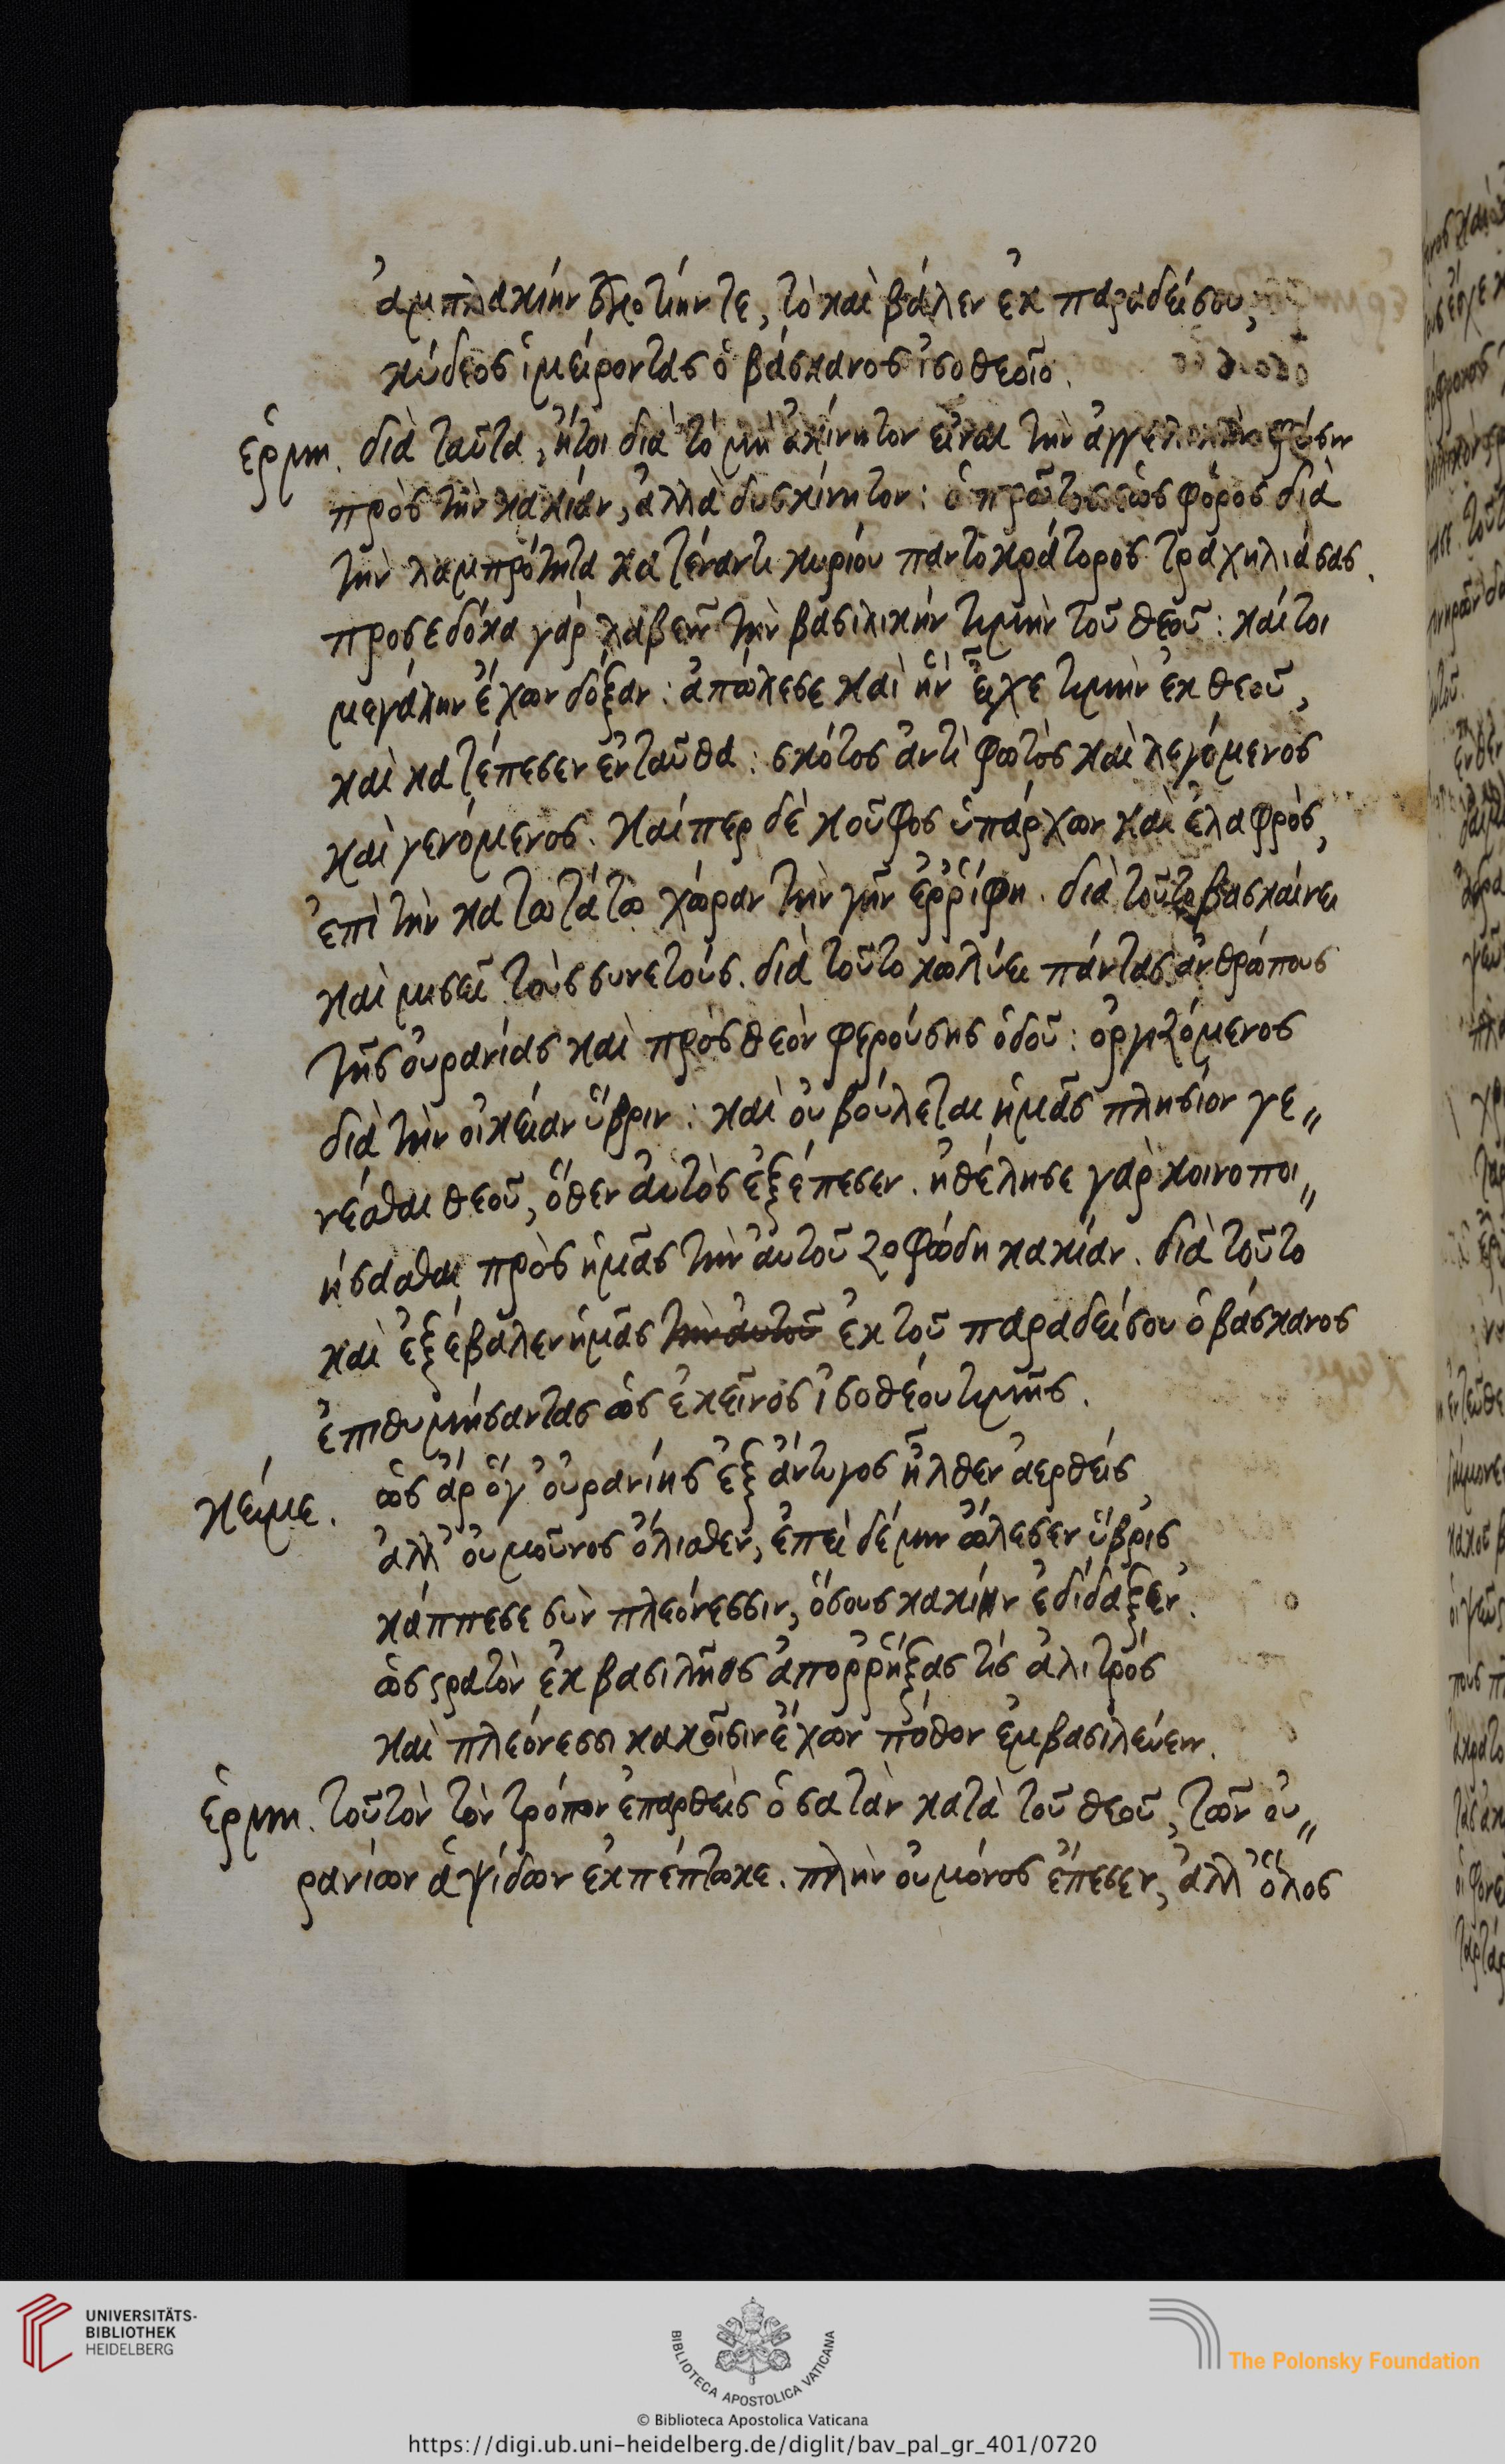 ἀμπλακίην σκοτίην τε, τὸ καὶ βάλεν ἐκ παραδείσου,
κύδεος ἱμείροντας ὁ βάσκανος ἰσοθεοῖο.
ἑρμη. διὰ ταῦτα, ἤτοι διὰ τὸ μὴ ἀκίνητον εἶναι τὴν ἀγγελικὴν φύσιν
πρὸς τὴν κακίαν, ἀλλὰ δυσκίνητον: ὁ πρῶτος ἑωσφόρος διὰ
τὴν λαμπρότητα κατέναντι κυρίου παντοκράτορος τραχηλιάσας.
προσεδόκα γὰρ λαβεῖν τὴν βασιλικὴν τιμὴν τοῦ θεοῦ: καίτοι
μεγάλην ἔχων δόξαν: ἀπώλεσε καὶ ἣν εἶχε τιμὴν ἐκ θεοῦ,
καὶ κατέπεσεν ἐνταῦθα: σκότος ἀντὶ φωτὸς καὶ λεγόμενος
καὶ γενόμενος. καίπερ δὲ κοῦφος ὑπάρχων καὶ ἐλαφρὸς,
ἐπὶ τὴν κατωτάτω χώραν τὴν γῆν ἐῤῥίφη. διὰ τοῦτο βασκαίνει
καὶ μισεῖ τοὺς συνετούς. διὰ τοῦτο κωλύει πάντας ἀνθρώπους
τῆς οὐρανίας καὶ πρὸς θεὸν φερούσης ὁδοῦ: ὀργιζόμενος
διὰ τὴν οἰκείαν ὕβριν: καὶ οὐ βούλεται ἡμᾶς πλησίον γε〃
νέσθαι θεοῦ, ὅθεν αὐτὸς ἐξέπεσεν. ἠθέλησε γὰρ κοινοποι〃
ήσασθαι πρὸς ἡμᾶς τὴν αὐτοῦ ζοφώδη κακίαν. διὰ τοῦτο
καὶ ἐξέβαλεν ἡμᾶς τὴν αὐτοῦ ἐκ τοῦ παραδείσου ὁ βάσκανος
ἐπιθυμήσαντας ὡς ἐκεῖνος ἰσοθέου τιμῆς.
κείμε. ὣς ἄρ ὅγ' οὐρανίης ἐξ ἄντυγος ἦλθεν ἀερθείς,
ἀλλ' οὐ μοῦνος ὄλισθεν, ἐπεὶ δέ μιν ὤλεσεν ὕβρις,
κάππεσε σὺν πλεόνεσσιν, ὅσους κακίην ἐδίδαξεν.
ὡς στρατὸν ἐκ βασιλῆος ἀποῤῥήξας τις ἀλιτρός
καὶ πλεόνεσσι κακοῖσιν ἔχων πόθον ἐμβασιλεύειν.
ἑρμη. τοῦτον τὸν τρόπον ἐπαρθεὶς ὁ σατὰν κατὰ τοῦ θεοῦ, τῶν οὐ〃
ρανίων ἁψίδων ἐκπέπτωκε. πλὴν οὐ μόνος ἔπεσεν, ἀλλ' ὅλος
UNIVERSITÄTS-
BIBLIOTHEK
HEIDELBERG
BIBLIOTECA APOSTOLICA VATICANA
The Polonsky Foundation
© Biblioteca Apostolica Vaticana
https://digi.ub.uni-heidelberg.de/diglit/bav_pal_gr_401/0720